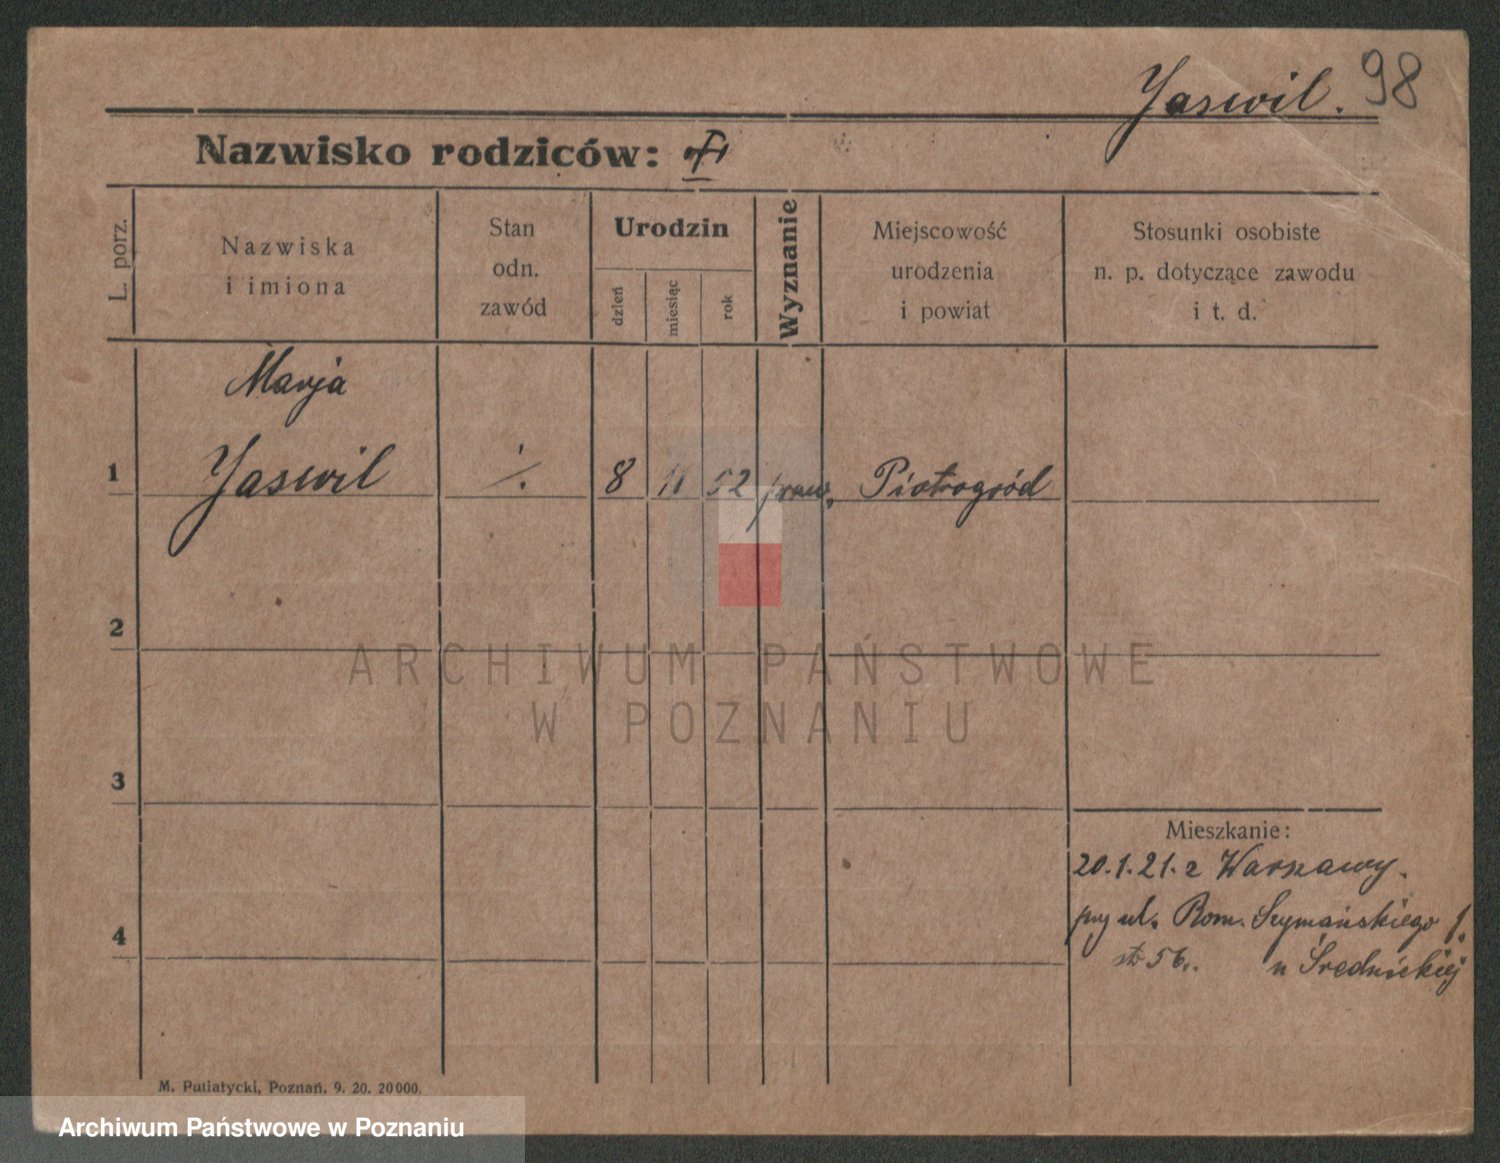 Yaswil. 98
Nazwisko rodziców:
L. porz.
Nazwiska
i imiona
Stan
odn.
zawód
Urodzin
dzień
miesiąc
rok
Wyznanie
Miejscowość
urodzenia
i powiat
Stosunki osobiste
n. p. dotyczące zawodu
i t. d.
Marja
1 Yaswil ./. 8 11 52 praw. Piotrogród
2
3
4
Mieszkanie:
20.1.21. z Warszawy.
przy ul. Rom. Szymańskiego
56. u Średnickiej
M. Putiatycki, Poznań. 9. 20. 20000.
ARCHIWUM PAŃSTWOWE
W POZNANIU
Archiwum Państwowe w Poznaniu